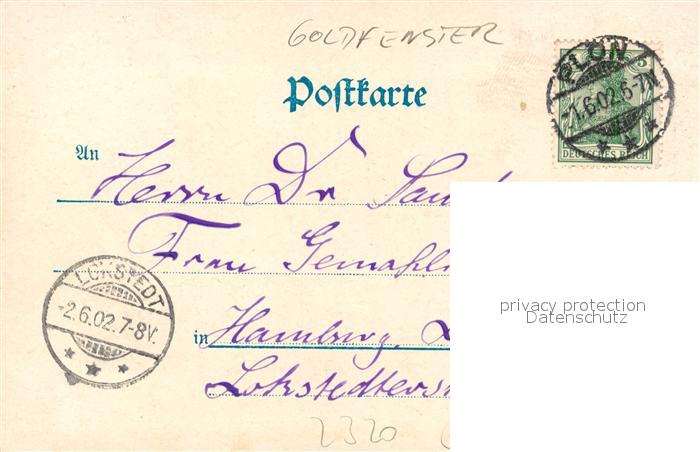 GOLDFENSTER
PLÖN
1.6.02.6-7N
5
DEUTSCHES REICH
Postkarte
An
Herrn Dr
Frau
LOKSTEDT
-2.6.02.7-8V.
in Hamburg,
privacy protection
Datenschutz
2320